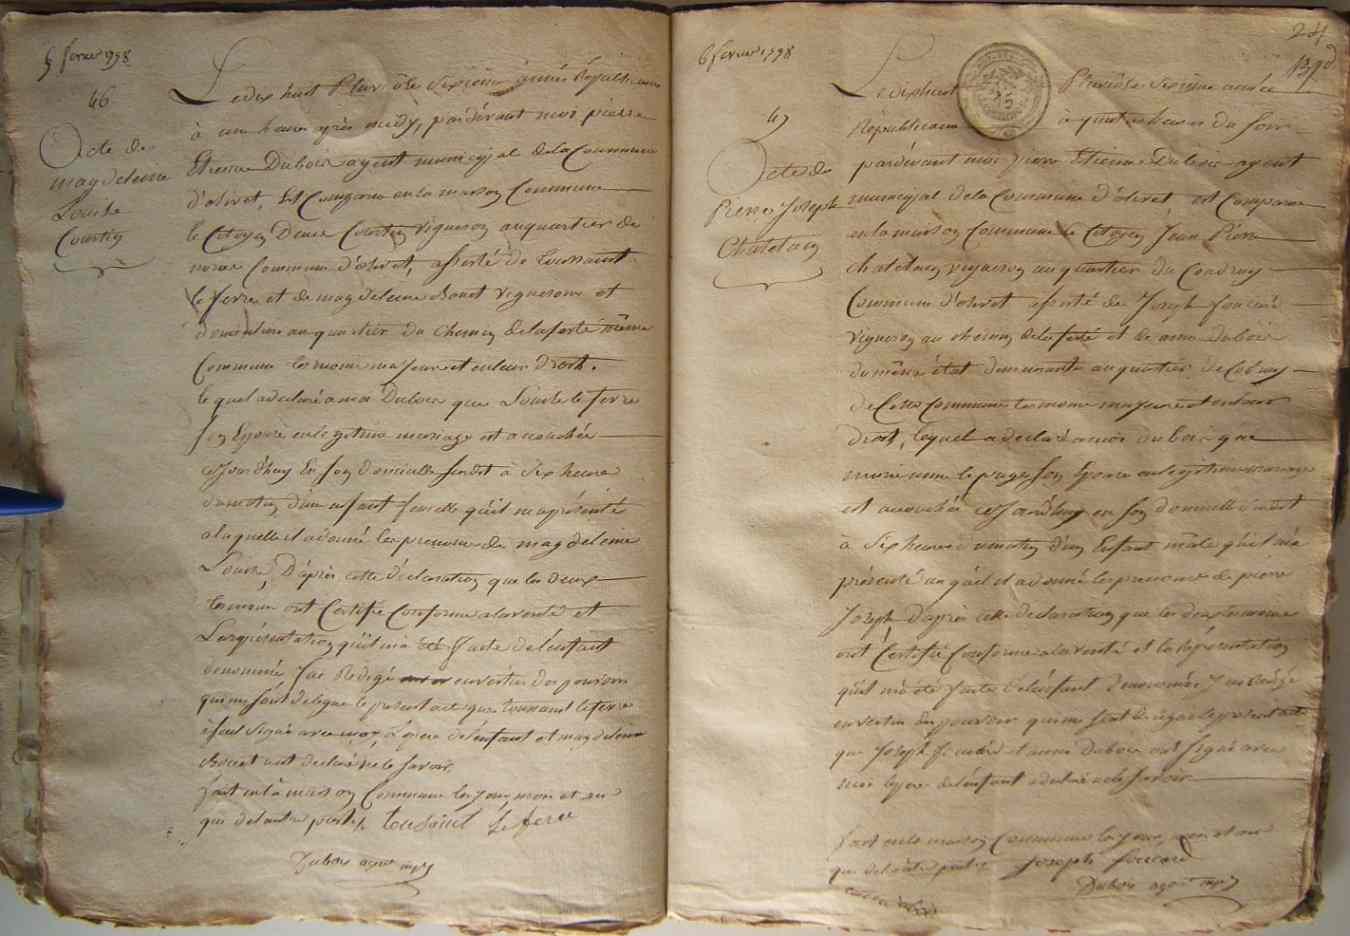 5 fevrier 1798
46
Acte de
magdeleine
Louise
Courtin
Le dix huit Pluviôse sixieme année Républicaine
à un heure après midy, pardevant moi pierre
Etienne Dubois agent municipal de la Commune
d'olivet, Est Comparu en la maison Commune
le Citoyen Denis Courtin vigneron au quartier de
Commune d'olivet, assisté de Toussaint
le ferre et de magdeleine Bonet vignerons et
demeurant au quartier du Chemin de la ferté même
Commune témoins majeurs et en leur droit.
lequel a declaré a moi Dubois que Louise le ferre
son Epouse en legitime mariage est accouchée
ce jourd'huy En son domicille susdit à six heures
du matin d'un enfant femelle qu'il m'a présenté
a laquelle il a donné les prenoms de magdeleine
Louise, D'après cette déclaration que les deux
témoins ont Certifié Conforme a la verité et
La représentation qu'il m'a été faite de l'enfant
denommé, j'ai Rédigé en vertu des pouvoirs
qui me sont delegué le présent acte que toussaint le ferre
a seul signé avec moy, Le pere de l'enfant et magdeleine
Bonet ont declaré ne le savoir.
fait en la maison Commune les jour, mois et an
que de l'autre part. toussaint Le ferre
Dubois agent mpl
24
6 fevrier 1798
47
Acte de
Pierre Joseph
Chatelain
Le dix huit Pluviôse sixieme année
Républicaine à quatre heures du soir
pardevant moi pierre Etienne Dubois agent
municipal de la Commune d'olivet est Comparu
en la maison Commune le Citoyen Jean Pierre
Chatelain vigneron au quartier du Coudray
Commune d'olivet assisté de Joseph foucard
vigneron au chemin de la ferté et de anne Dubois
du même état demeurante au quartier de Codray
de Cette Commune témoins majeurs et en leur
droit, lequel a declaré a moi dubois que
marie anne le page son Epouse en legitime mariage
est accouchée ce jourd'huy en son domicille susdit
à six heures du matin d'un Enfant mâle qu'il m'a
présenté auquel il a donné les prenoms de pierre
Joseph D'après cette declaration que les deux temoins
ont Certifié Conforme a la verité et la réprésentation
qu'il m'a été faite de l'enfant denommé, J'ai Rédigé
en vertu des pouvoirs qui me sont delégué le present acte
que Joseph foucard et anne Dubois ont signé avec
moi le pere de l'enfant a declaré ne le savoir
fait en la maison Commune les jour, mois et an
que de l'autre part Joseph foucard
Dubois agent mpl